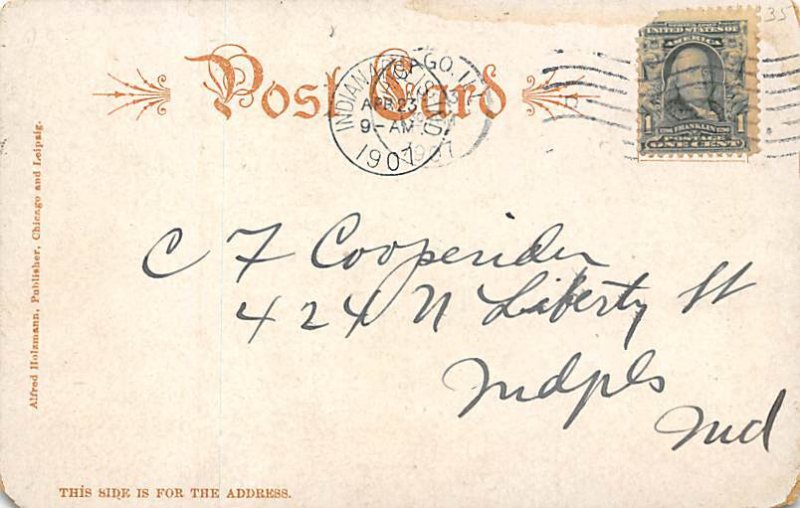 35
Post Card
INDIANAPOLIS, IND.
APR 23
9-AM
1907
1907
UNITED STATES OF
AMERICA
1 FRANKLIN 1
POSTAGE
ONE CENT
Alfred Holzmann, Publisher, Chicago and Leipzig.
C F Cooperider
424 N Liberty St
Indpls
Ind
THIS SIDE IS FOR THE ADDRESS.